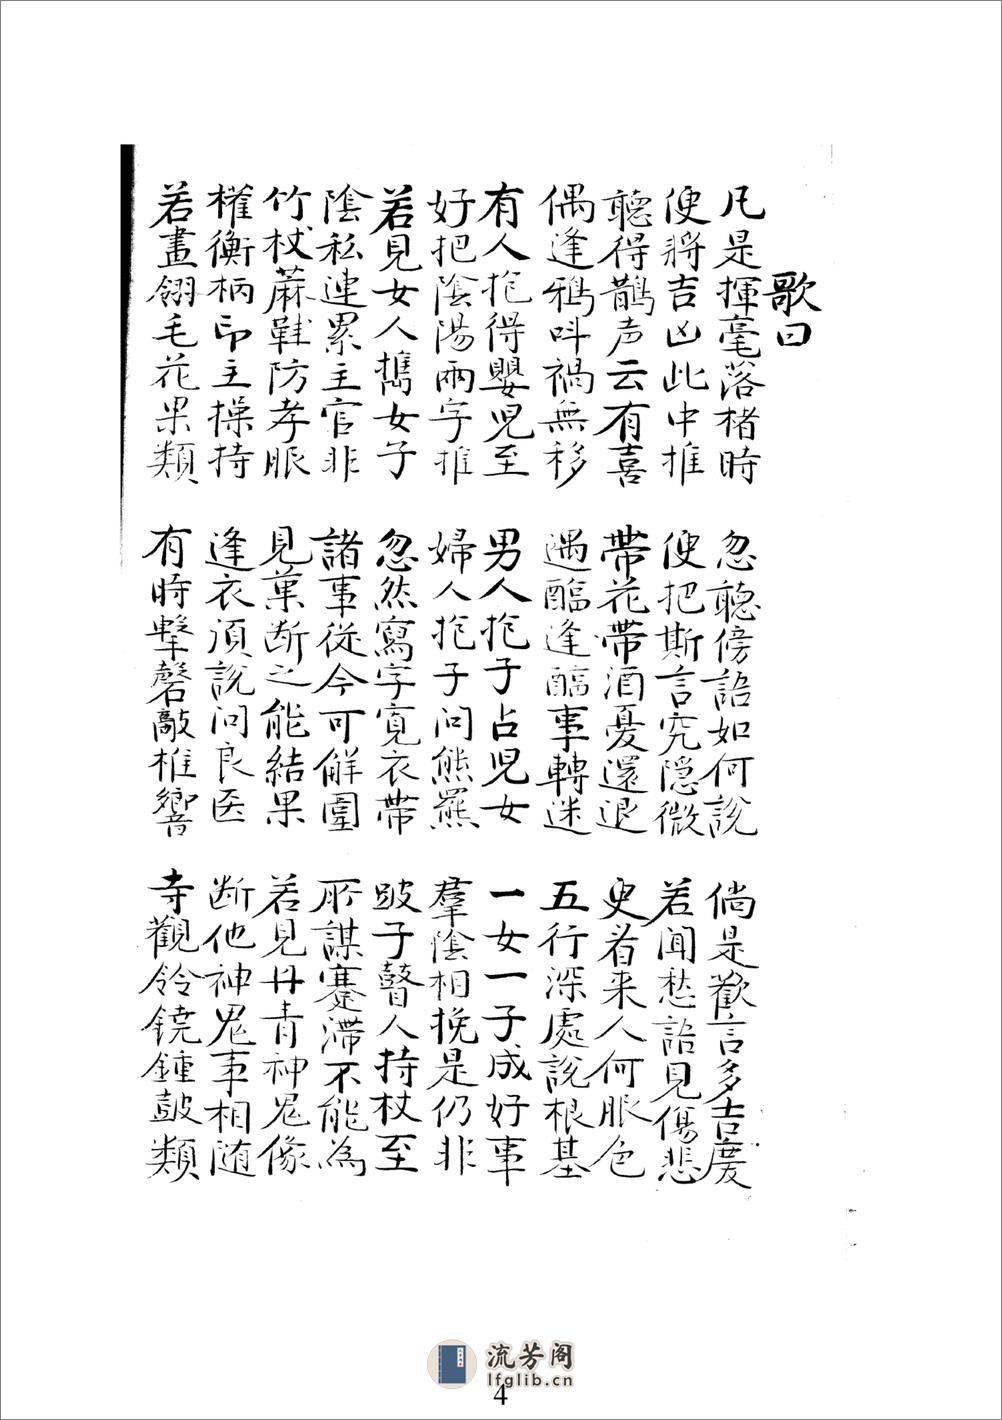 歌曰
凡是揮毫落楮時　忽聽傍語如何說　倘是歡言多吉慶
便將吉凶此中推　便把斯言究隐微　若闻愁語見傷悲
聽得鵲声云有喜　帶花帶酒憂還退　更看来人何服色
偶逢鴉呌禍無移　遇醢逢醢事轉迷　五行深處説根基
有人抱得嬰児至　男人抱子占児女　一女一子成好事
好把陰陽兩字推　婦人抱子问熊羆　羣陰相挽是仍非
若見女人攜女子　忽然寫字寬衣帶　跛子瞽人持杖至
陰私連累主官非　諸事從今可觧圍　所謀蹇滞不能為
竹杖蔴鞋防孝服　見菓断之能結果　若見丹青神鬼像
權衡柄印主操持　逢衣須説问良医　断他神鬼事相随
若畫翎毛花果類　有時擊磬敲椎響　寺觀鈴鐃鍾鼓類
流芳阁
lfglib.cn
4